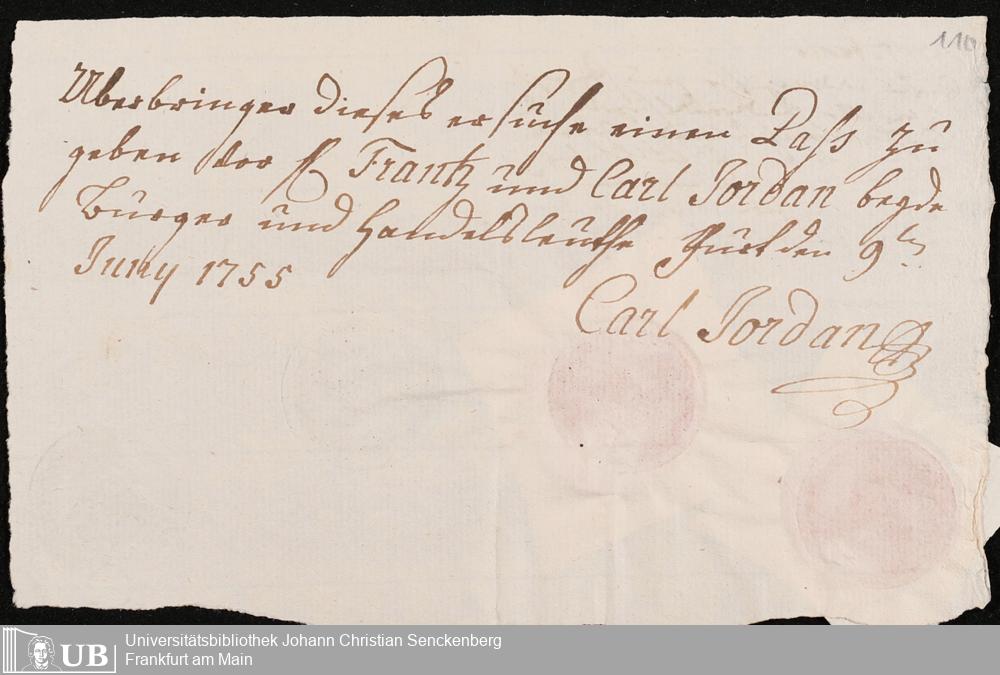 110
Uberbringer dieses ersuche einen Pass zu
geben vor H Frantz und Carl Jordan beyde
Bürger und Handelsleuthe den 9ten
Juny 1755
Carl Jordan
UB
Universitätsbibliothek Johann Christian Senckenberg
Frankfurt am Main